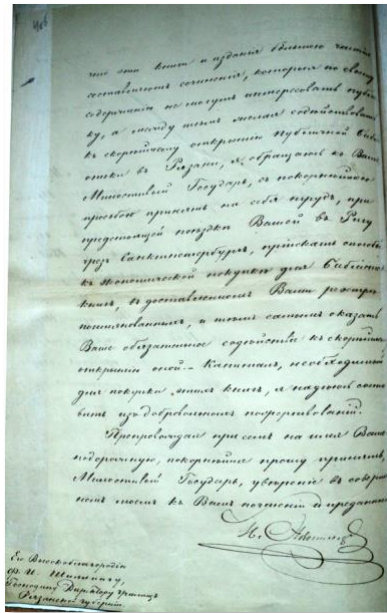 что эти книги и издания большею частию
составляютъ сочиненія, которыя по своему
содержанію не могутъ интересовать публи-
ку, а между тѣмъ желая содѣйствовать
къ скорѣйшему открытію Публичной Библі-
отеки въ Рязани, я обращаюсь къ Вамъ
Милостивый Государь, съ покорнѣйшею
просьбою принять на себя трудъ, при
предстоящей поѣздкѣ Вашей въ Ригу
чрезъ Санктпетербургъ, пріискать способы
къ экономической покупкѣ для Библіотеки
книгъ, въ доставленномъ Вами реэстрѣ
поименованныхъ, и тѣмъ самымъ оказать
Ваше обязательное содѣйствіе къ скорѣйшему
открытію оной. Капиталъ, необходимый
для покупки этихъ книгъ, я надѣюсь соста-
вить изъ добровольныхъ пожертвованій.
Препровождая при семъ на имя Ваше
подорожную, покорнѣйше прошу принять,
Милостивый Государь, увѣреніе въ совер-
номъ моемъ къ Вамъ почтеніи и преданно
Его Высокоблагородію
Ф. И. Шиллингу,
Господину Директору Училищъ
Рязанской Губерніи.